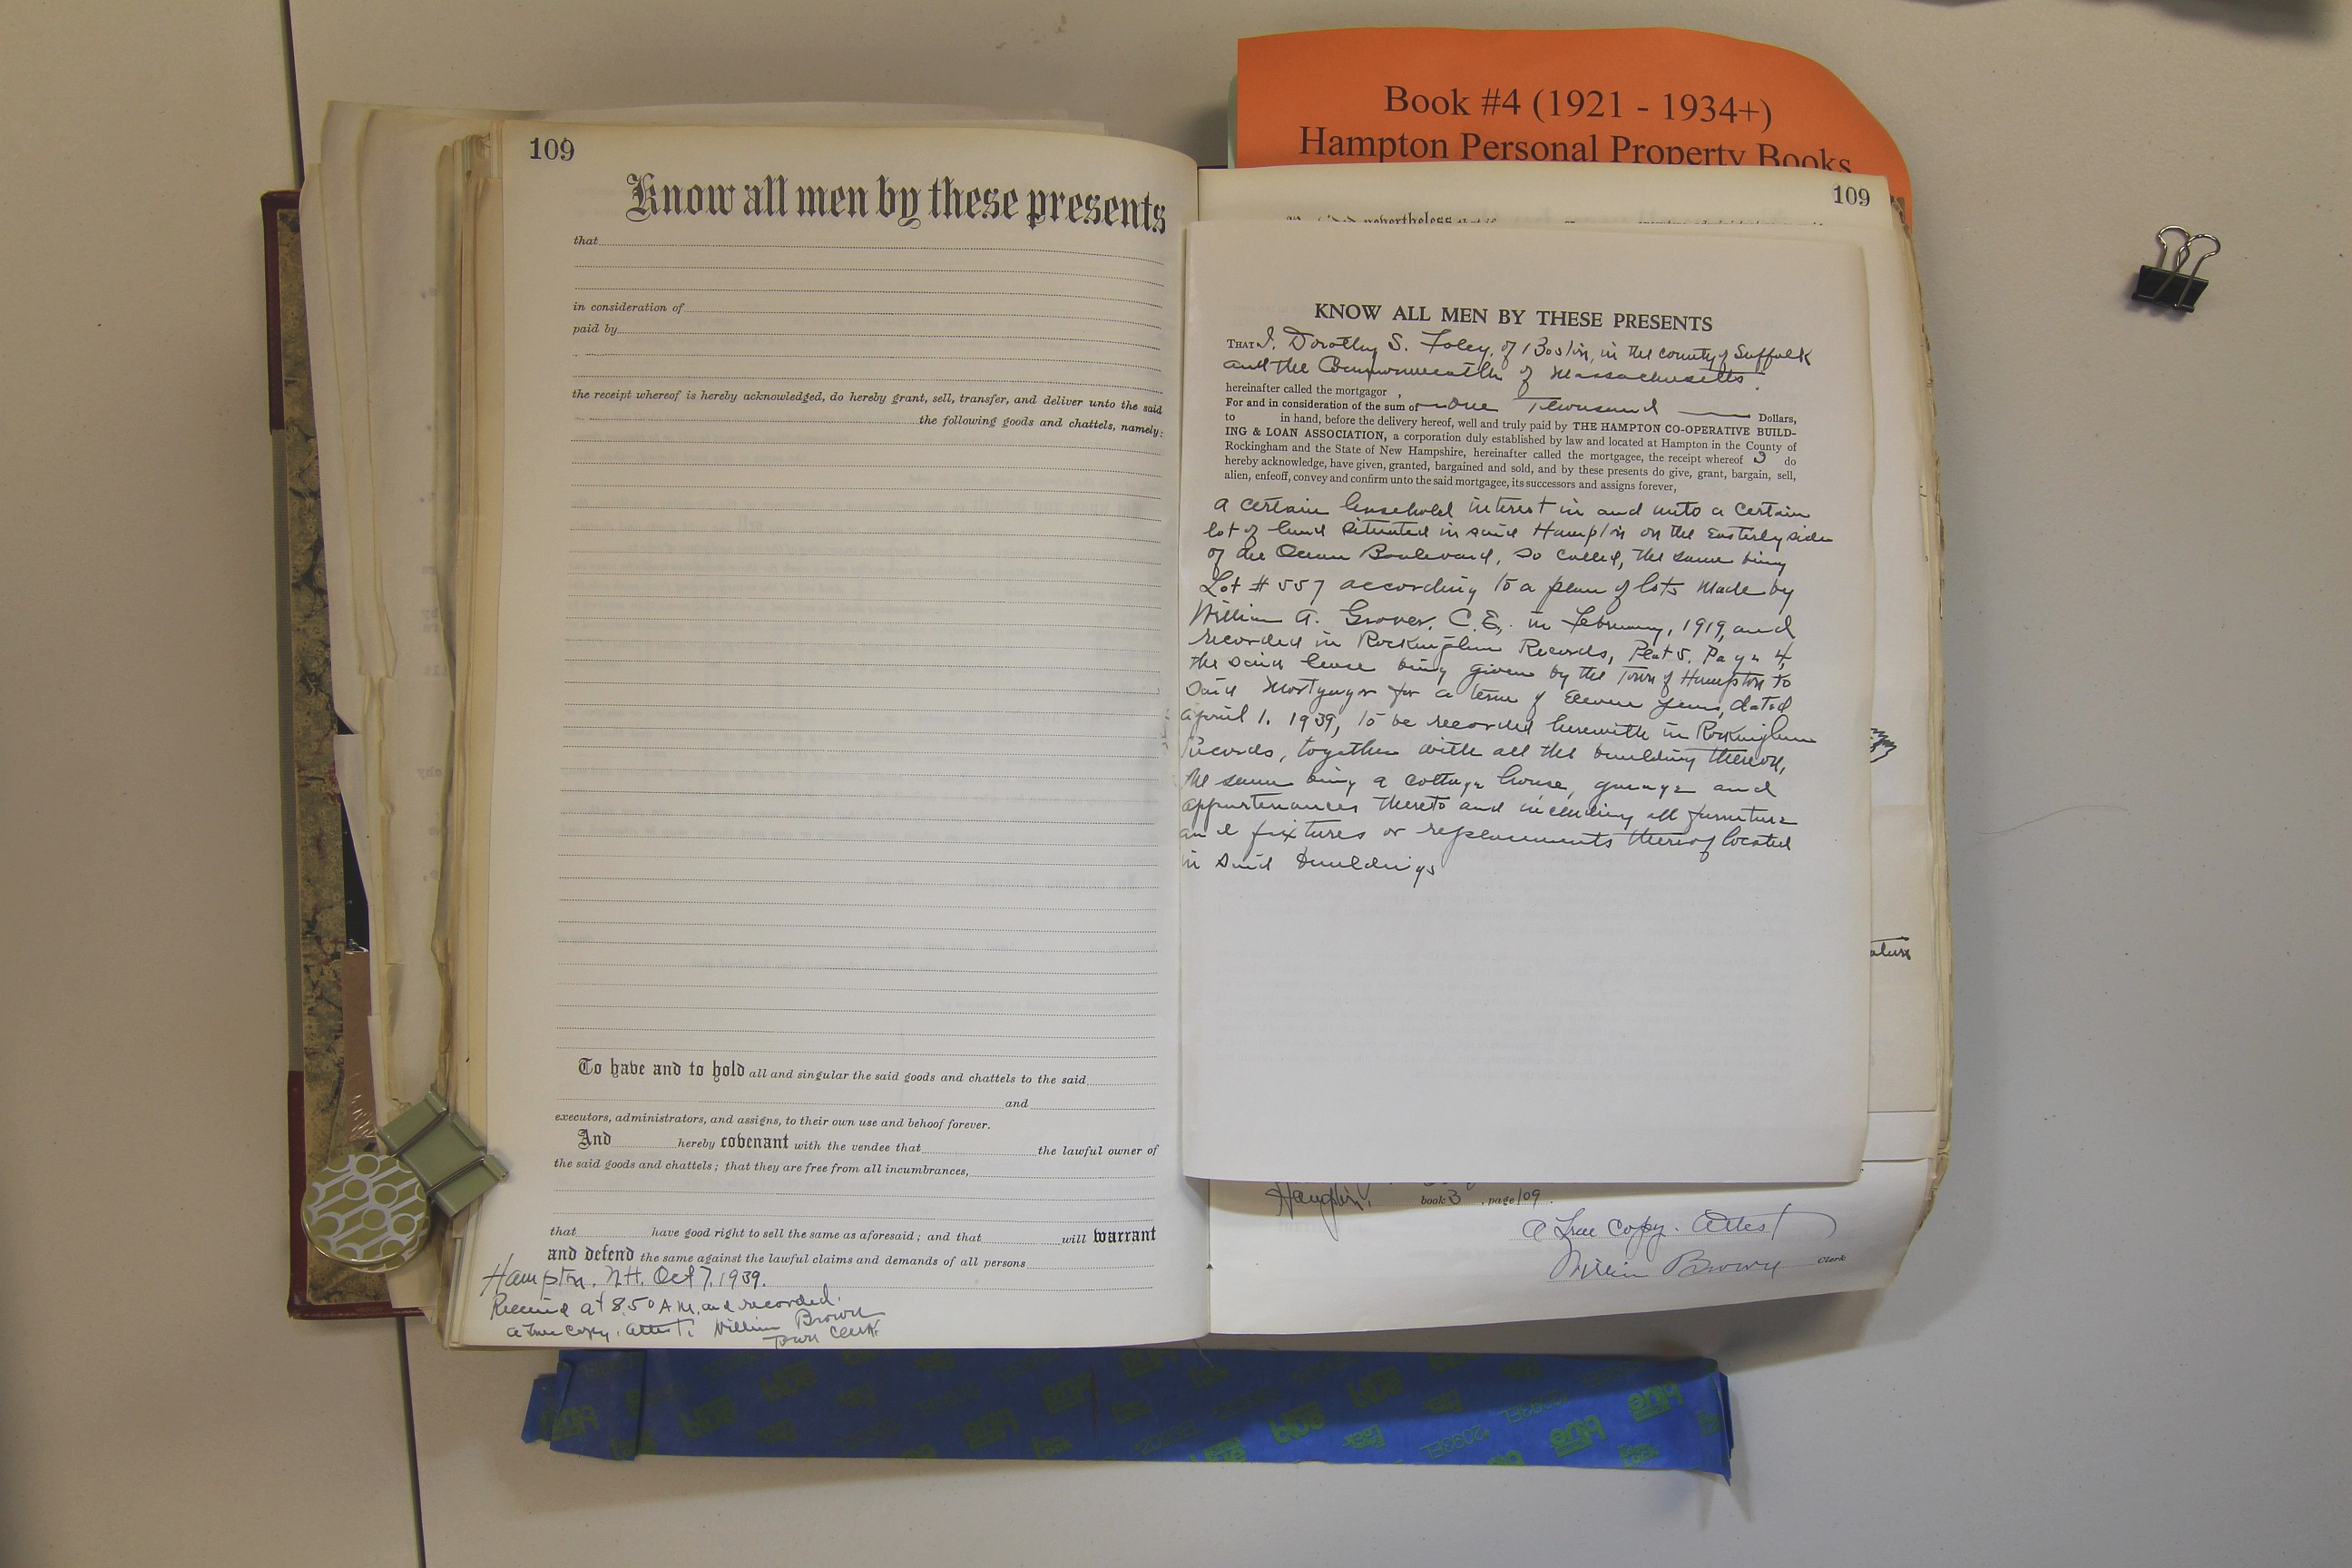 Book #4 (1921 - 1934+)
Hampton Personal Property Books
109
Know all men by these presents
that
in consideration of
paid by
the receipt whereof is hereby acknowledged, do hereby grant, sell, transfer, and deliver unto the said
the following goods and chattels, namely:
To have and to hold all and singular the said goods and chattels to the said
and
executors, administrators, and assigns, to their own use and behoof forever.
And hereby covenant with the vendee that the lawful owner of
the said goods and chattels; that they are free from all incumbrances,
that have good right to sell the same as aforesaid; and that will warrant
and defend the same against the lawful claims and demands of all persons
Hampton. N.H. Oct 7, 1939.
Received at 8.50 A.M. and recorded.
a true copy. attest. William Brown
Town Clerk.
109
nevertheless
KNOW ALL MEN BY THESE PRESENTS
THAT I, Dorothy S. Foley, of Boston, in the county of Suffolk
and the Commonwealth of Massachusetts.
hereinafter called the mortgagor ,
For and in consideration of the sum of One Thousand Dollars,
to in hand, before the delivery hereof, well and truly paid by THE HAMPTON CO-OPERATIVE BUILD-
ING & LOAN ASSOCIATION, a corporation duly established by law and located at Hampton in the County of
Rockingham and the State of New Hampshire, hereinafter called the mortgagee, the receipt whereof I do
hereby acknowledge, have given, granted, bargained and sold, and by these presents do give, grant, bargain, sell,
alien, enfeoff, convey and confirm unto the said mortgagee, its successors and assigns forever,
a certain leasehold interest in and unto a certain
lot of land situated in said Hampton on the Easterly side
of the Ocean Boulevard, so called, the same being
Lot # 557 according to a plan of lots made by
William A. Grover, C.E, in February, 1919, and
recorded in Rockingham Records, Plat 5. Page 4,
the said lease being given by the Town of Hampton to
said Mortgagor for a term of Eleven years, dated
April 1. 1939, to be recorded herewith in Rockingham
Records, together with all the building thereon,
the same being a cottage house, garage and
appurtenances thereto and including all furniture
and fixtures or replacements thereof located
in said buildings
Hampton, book 3 , page 109 .
A True Copy. Attest
William Brown Clerk